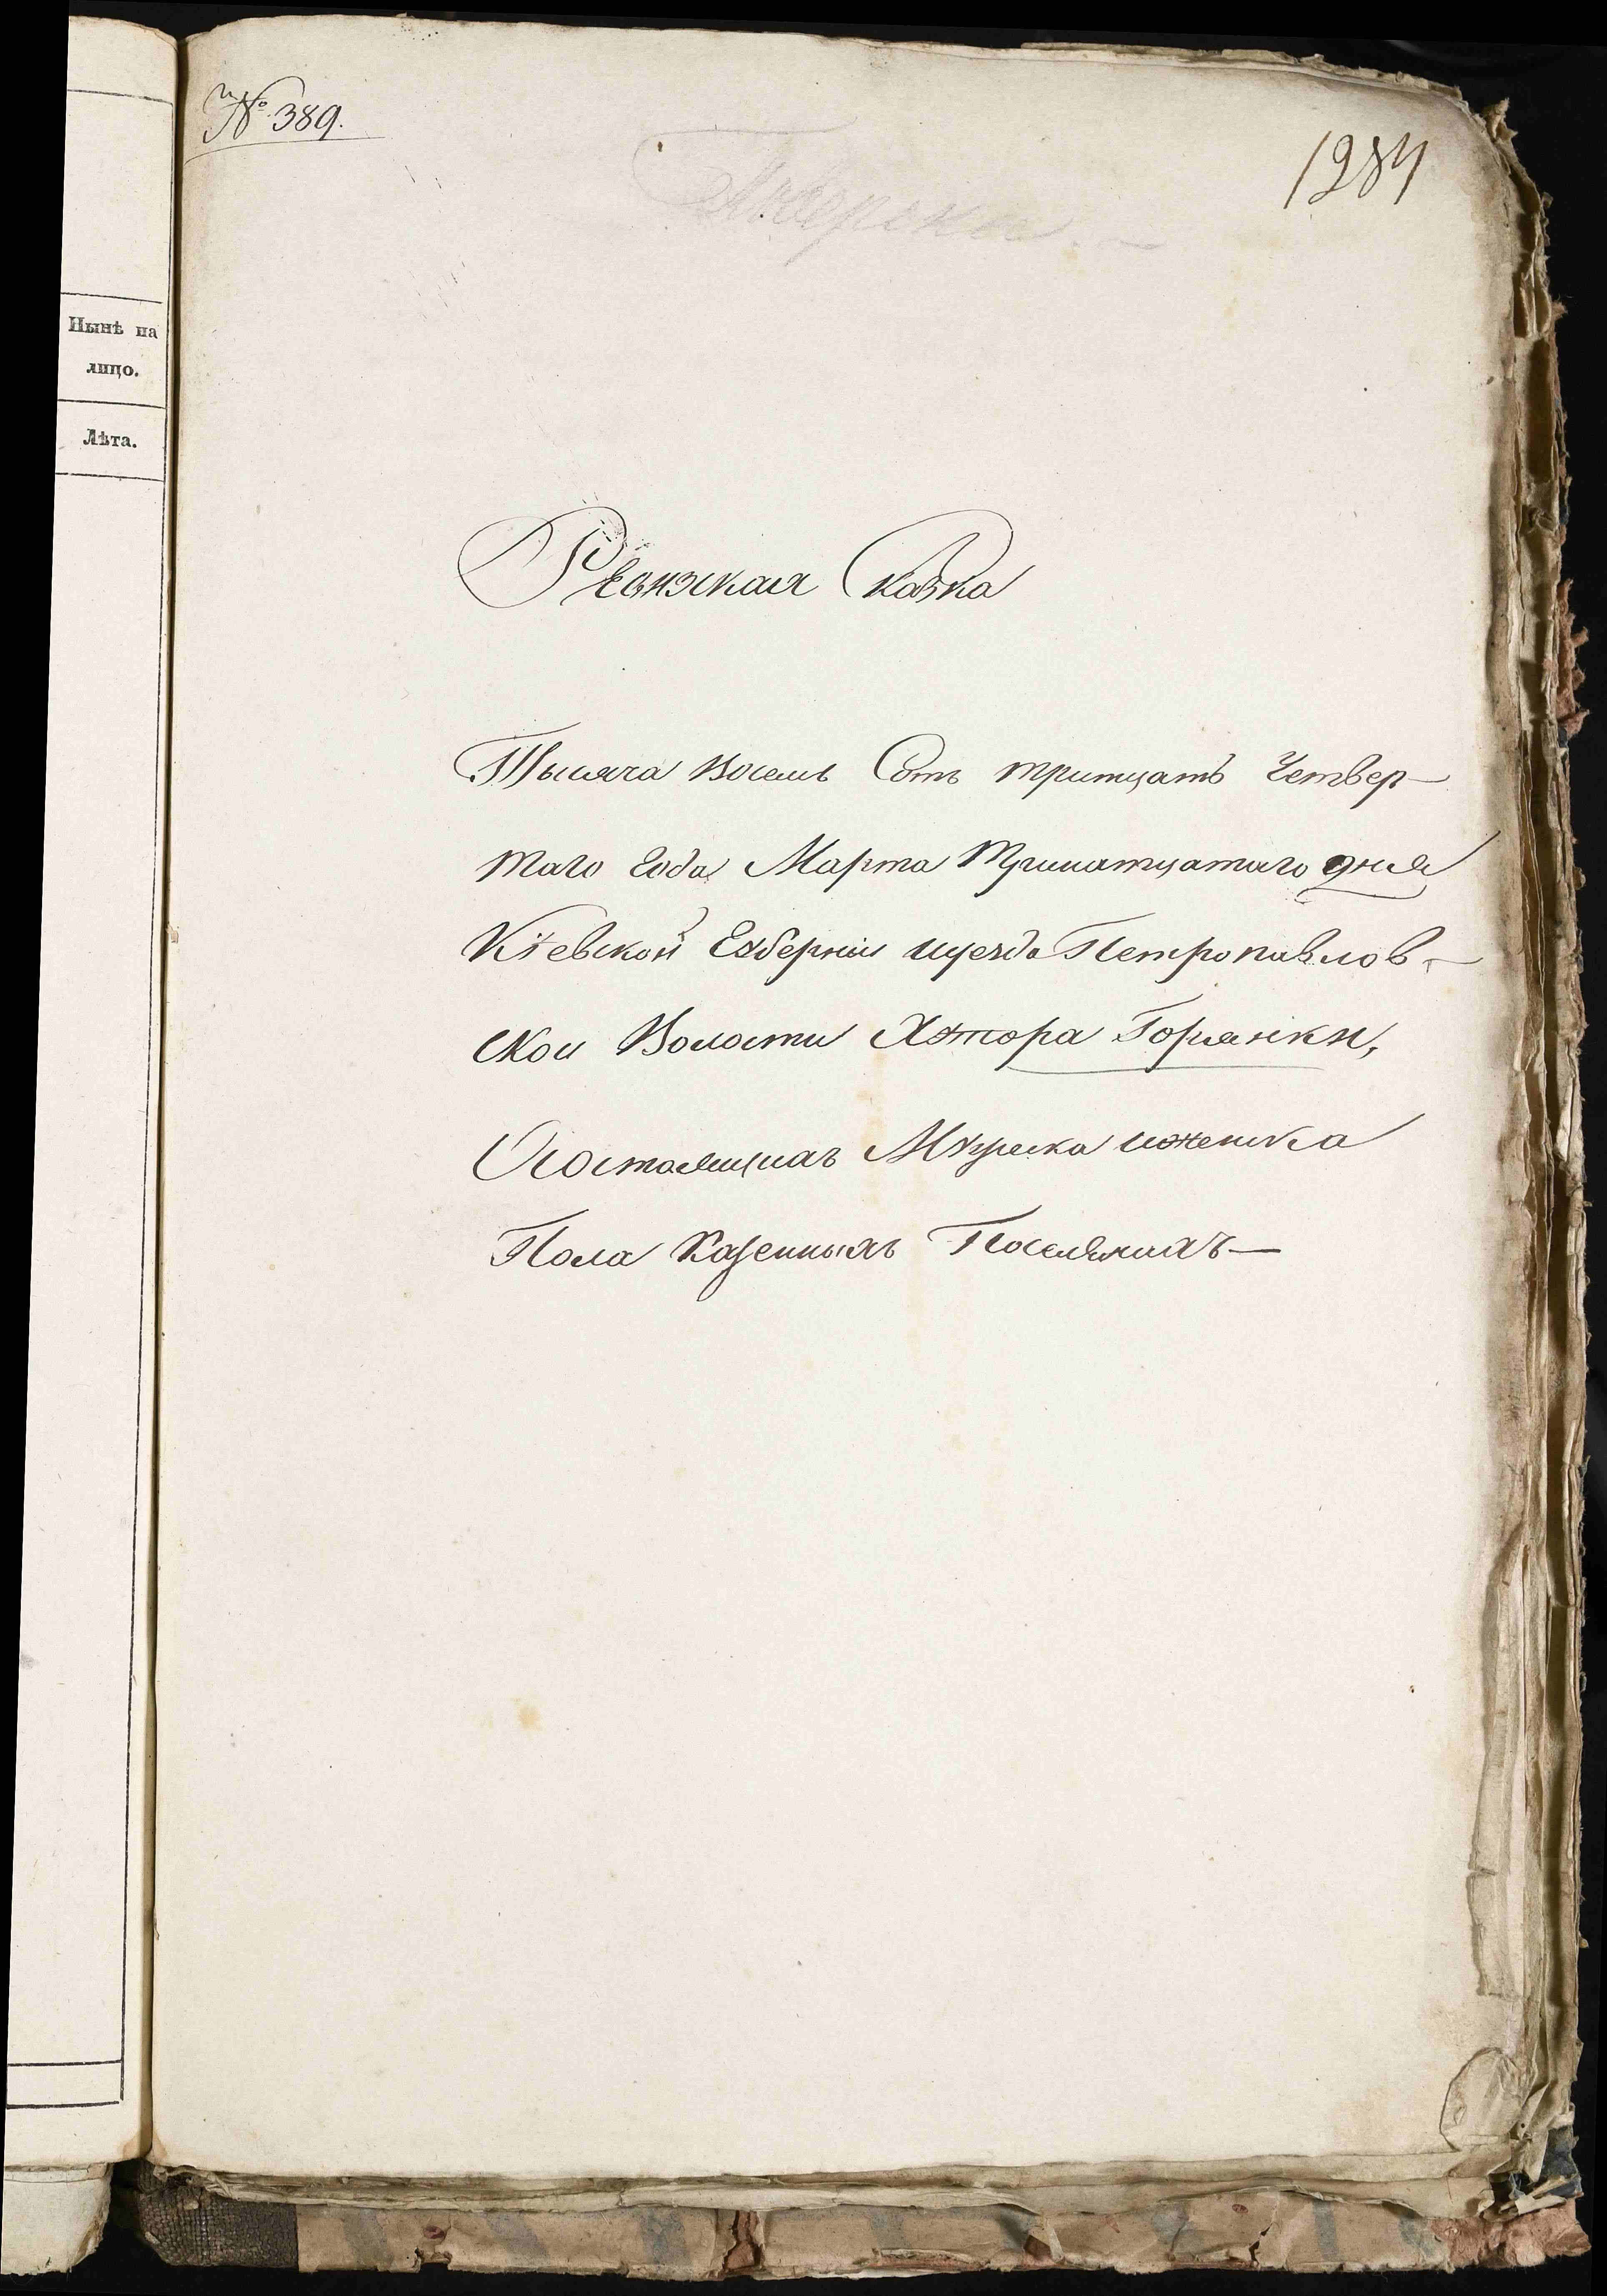 № 389.
1284
Нынѣ на
лицо.
Лѣта.
Ревизская Сказка
Тысяча Восемь Сотъ тритцать Четвер-
таго Года Марта Тринатцатаго дня
Кіевской Губерніи иуезда Петропавлов-
ской Волости Хутора Горянки,
Осостоящихъ Мужеска иженска
Пола Казенныхъ Поселянахъ